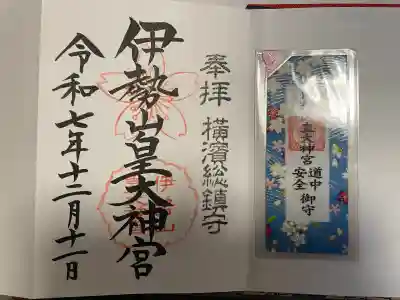 奉拝
横濱総鎮守
伊勢山皇大神宮
令和七年十二月十一日
皇大神宮
道中
安全
御守